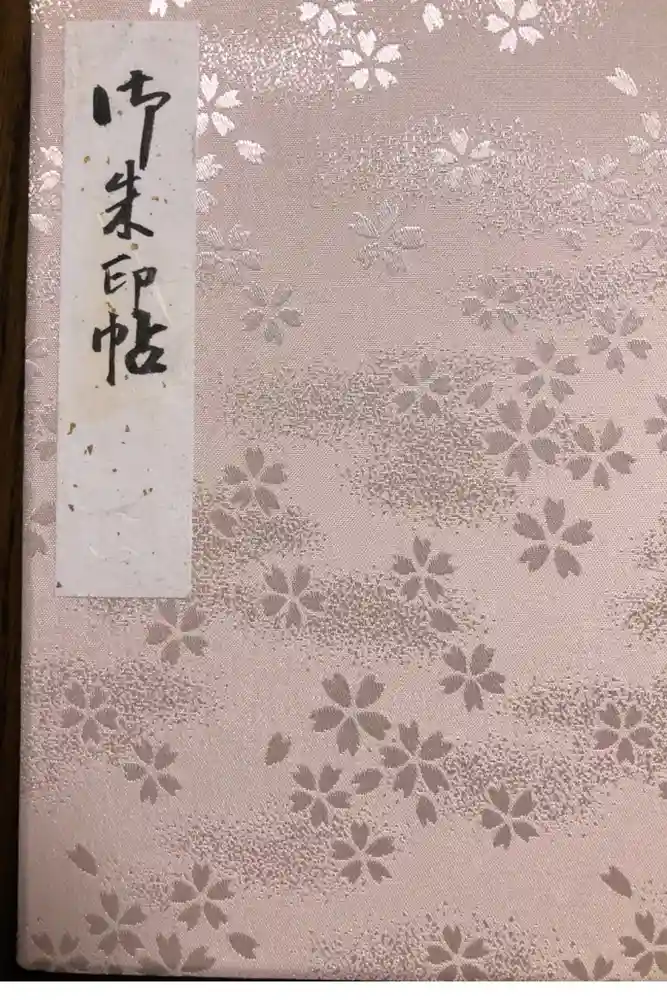 御朱印帖